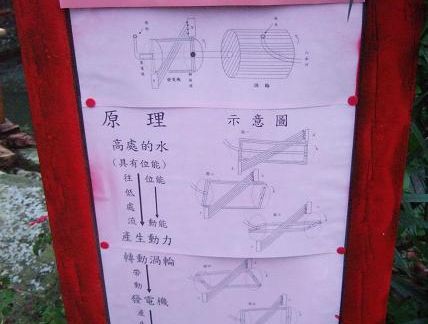 發電機
渦輪
原理
示意圖
高處的水
(具有位能)
往低處流
位能
動能
產生動力
轉動渦輪
帶動
發電機
產